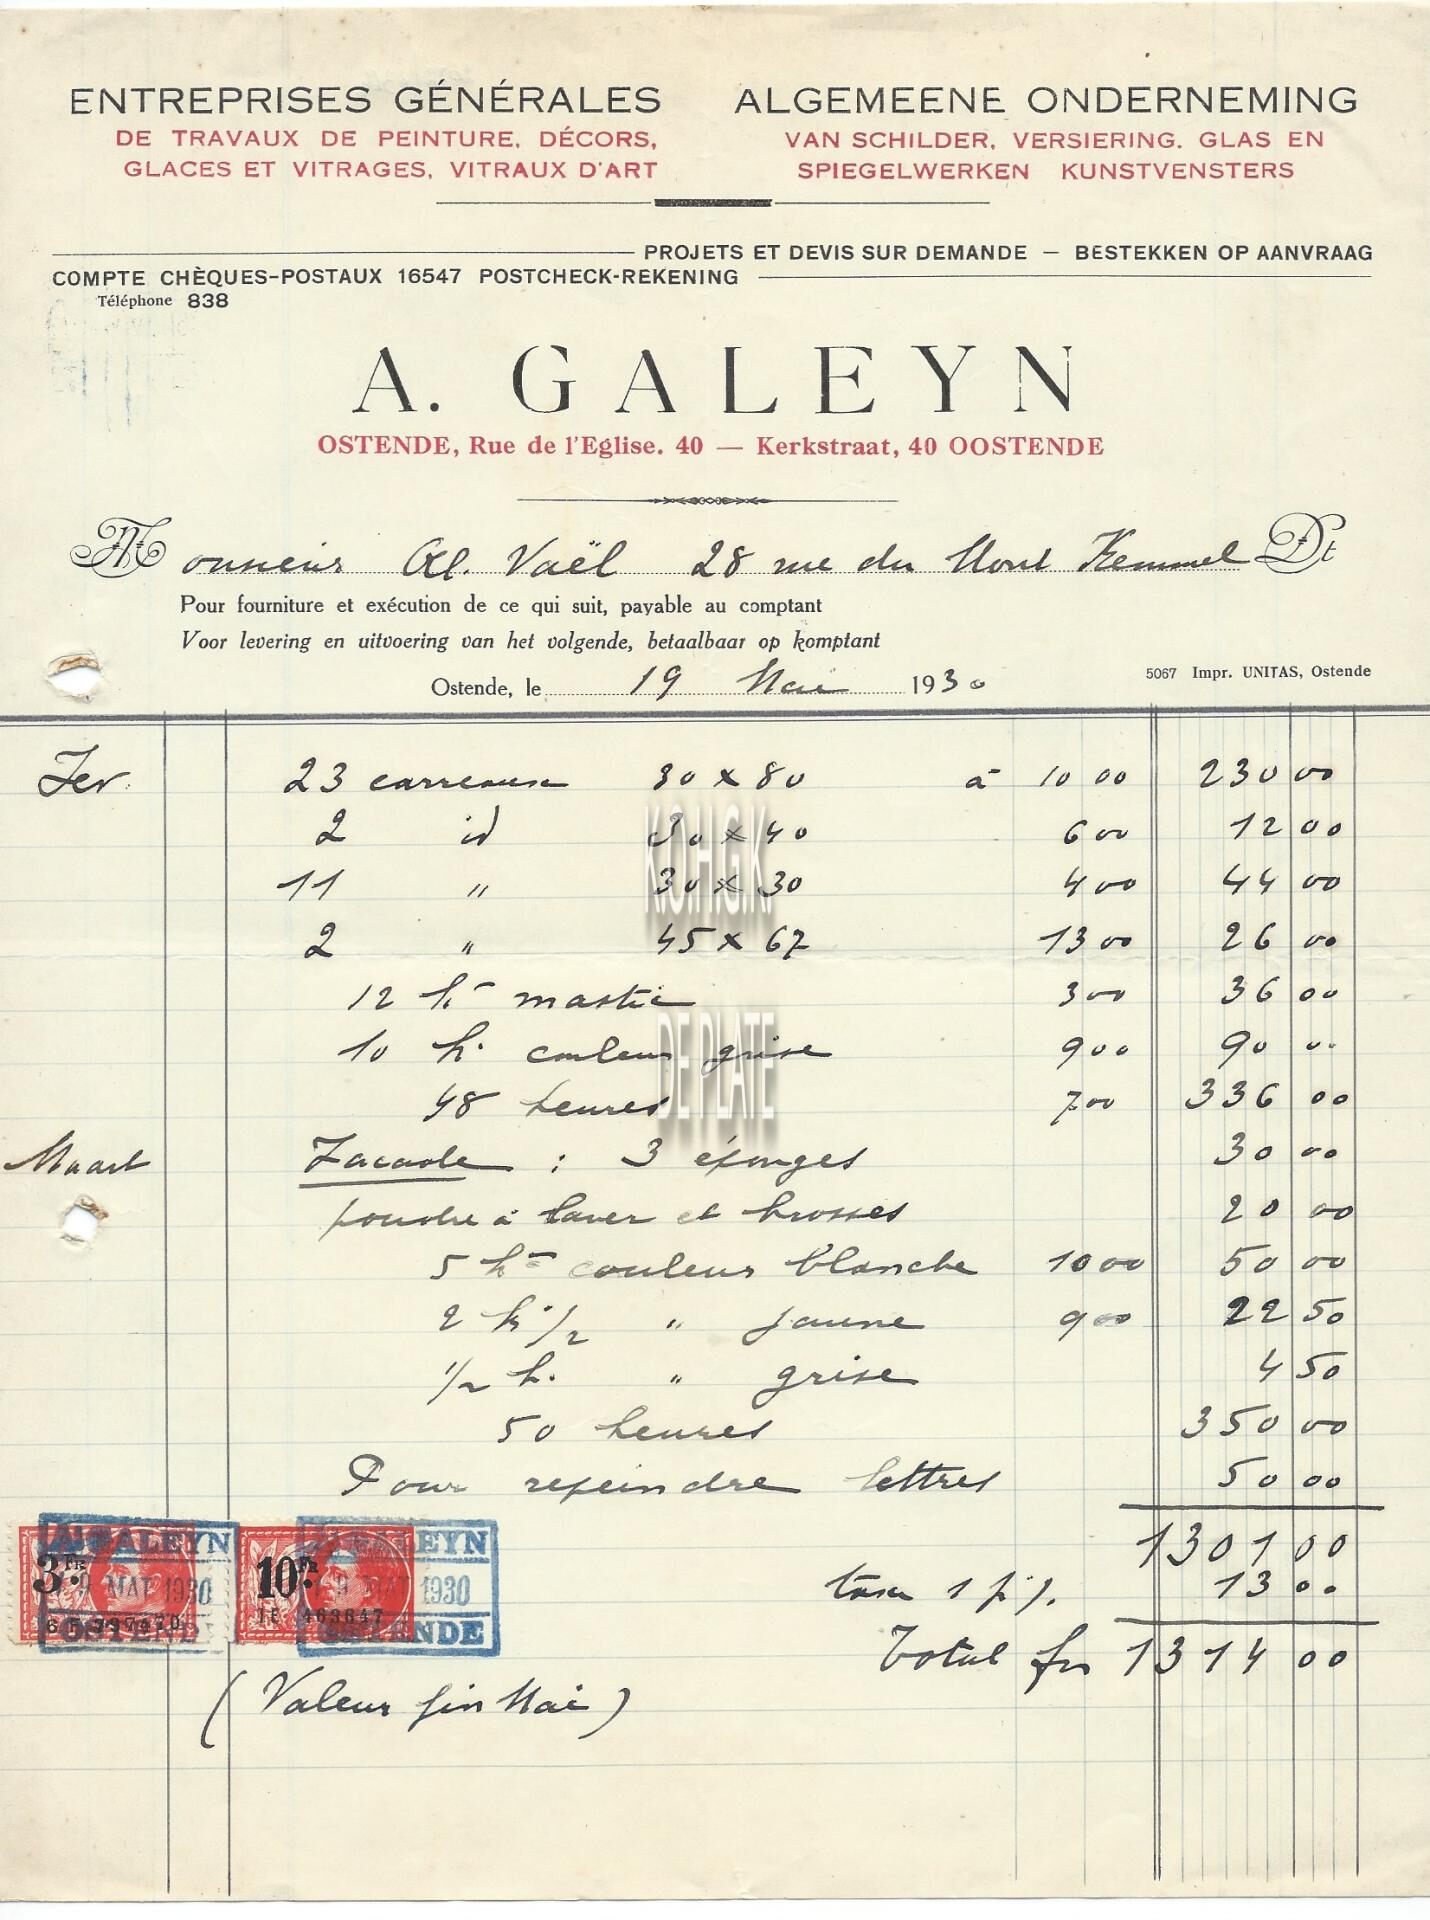 ENTREPRISES GÉNÉRALES
DE TRAVAUX DE PEINTURE, DÉCORS,
GLACES ET VITRAGES, VITRAUX D'ART
ALGEMEENE ONDERNEMING
VAN SCHILDER, VERSIERING. GLAS EN
SPIEGELWERKEN KUNSTVENSTERS
PROJETS ET DEVIS SUR DEMANDE — BESTEKKEN OP AANVRAAG
COMPTE CHÈQUES-POSTAUX 16547 POSTCHECK-REKENING
Téléphone 838
A. GALEYN
OSTENDE, Rue de l'Eglise. 40 — Kerkstraat, 40 OOSTENDE
Monsieur Al. Vaël 28 rue du Mont Kemmel Dt
Pour fourniture et exécution de ce qui suit, payable au comptant
Voor levering en uitvoering van het volgende, betaalbaar op komptant
Ostende, le 19 Mai 1930
5067 Impr. UNITAS, Ostende
Fev. 23 carreaux 30 x 80 à 10 00 230 00
2 id 30 x 40 6 00 12 00
11 " 30 x 30 4 00 44 00
2 " 45 x 67 13 00 26 00
12 k. mastic 3 00 36 00
10 k. couleur grise 9 00 90 00
48 heures 7 00 336 00
Maart Facade : 3 éponges 30 00
poudre à laver et brosses 20 00
5 k. couleur blanche 10 00 50 00
2 k 1/2 " jaune 9 00 22 50
1/2 k. " grise 4 50
50 heures 350 00
Pour repeindre lettres 50 00
1301 00
taxe 1 p%. 13 00
Total frs 1314 00
(Valeur fin Mai)
K.O.H.G.K.
DE PLATE
3 FR.
A. GALEYN
9 MAI 1930
OSTENDE
10 FR.
GALEYN
9 MAI 1930
OSTENDE